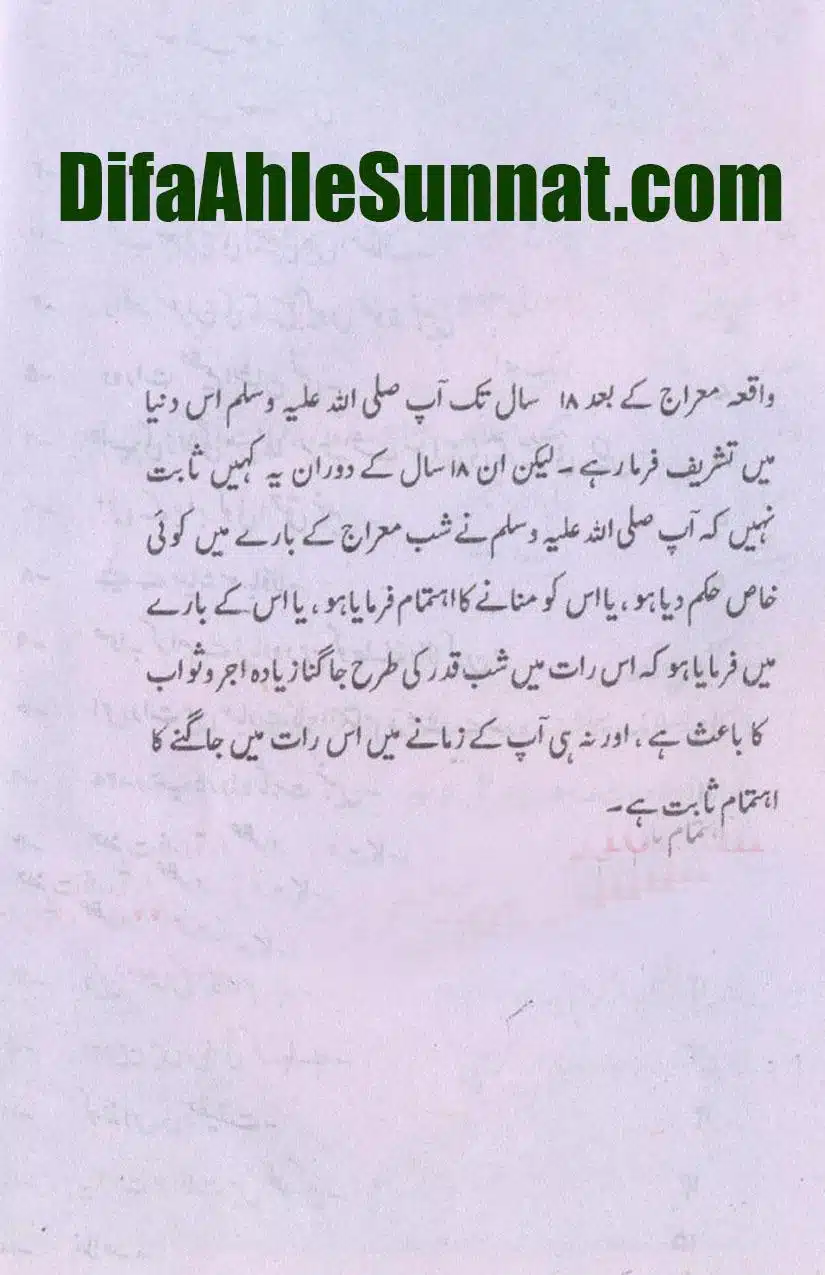 DifaAhleSunnat.com
واقعہ معراج کے بعد ۱۸ سال تک آپ صلی اللہ علیہ وسلم اس دنیا
میں تشریف فرما رہے ۔ لیکن ان ۱۸ سال کے دوران یہ کہیں ثابت
نہیں کہ آپ صلی اللہ علیہ وسلم نے شب معراج کے بارے میں کوئی
خاص حکم دیا ہو ، یا اس کو منانے کا اہتمام فرمایا ہو ، یا اس کے بارے
میں فرمایا ہو کہ اس رات میں شب قدر کی طرح جاگنا زیادہ اجر و ثواب
کا باعث ہے ، اور نہ ہی آپ کے زمانے میں اس رات میں جاگنے کا
اہتمام ثابت ہے ۔